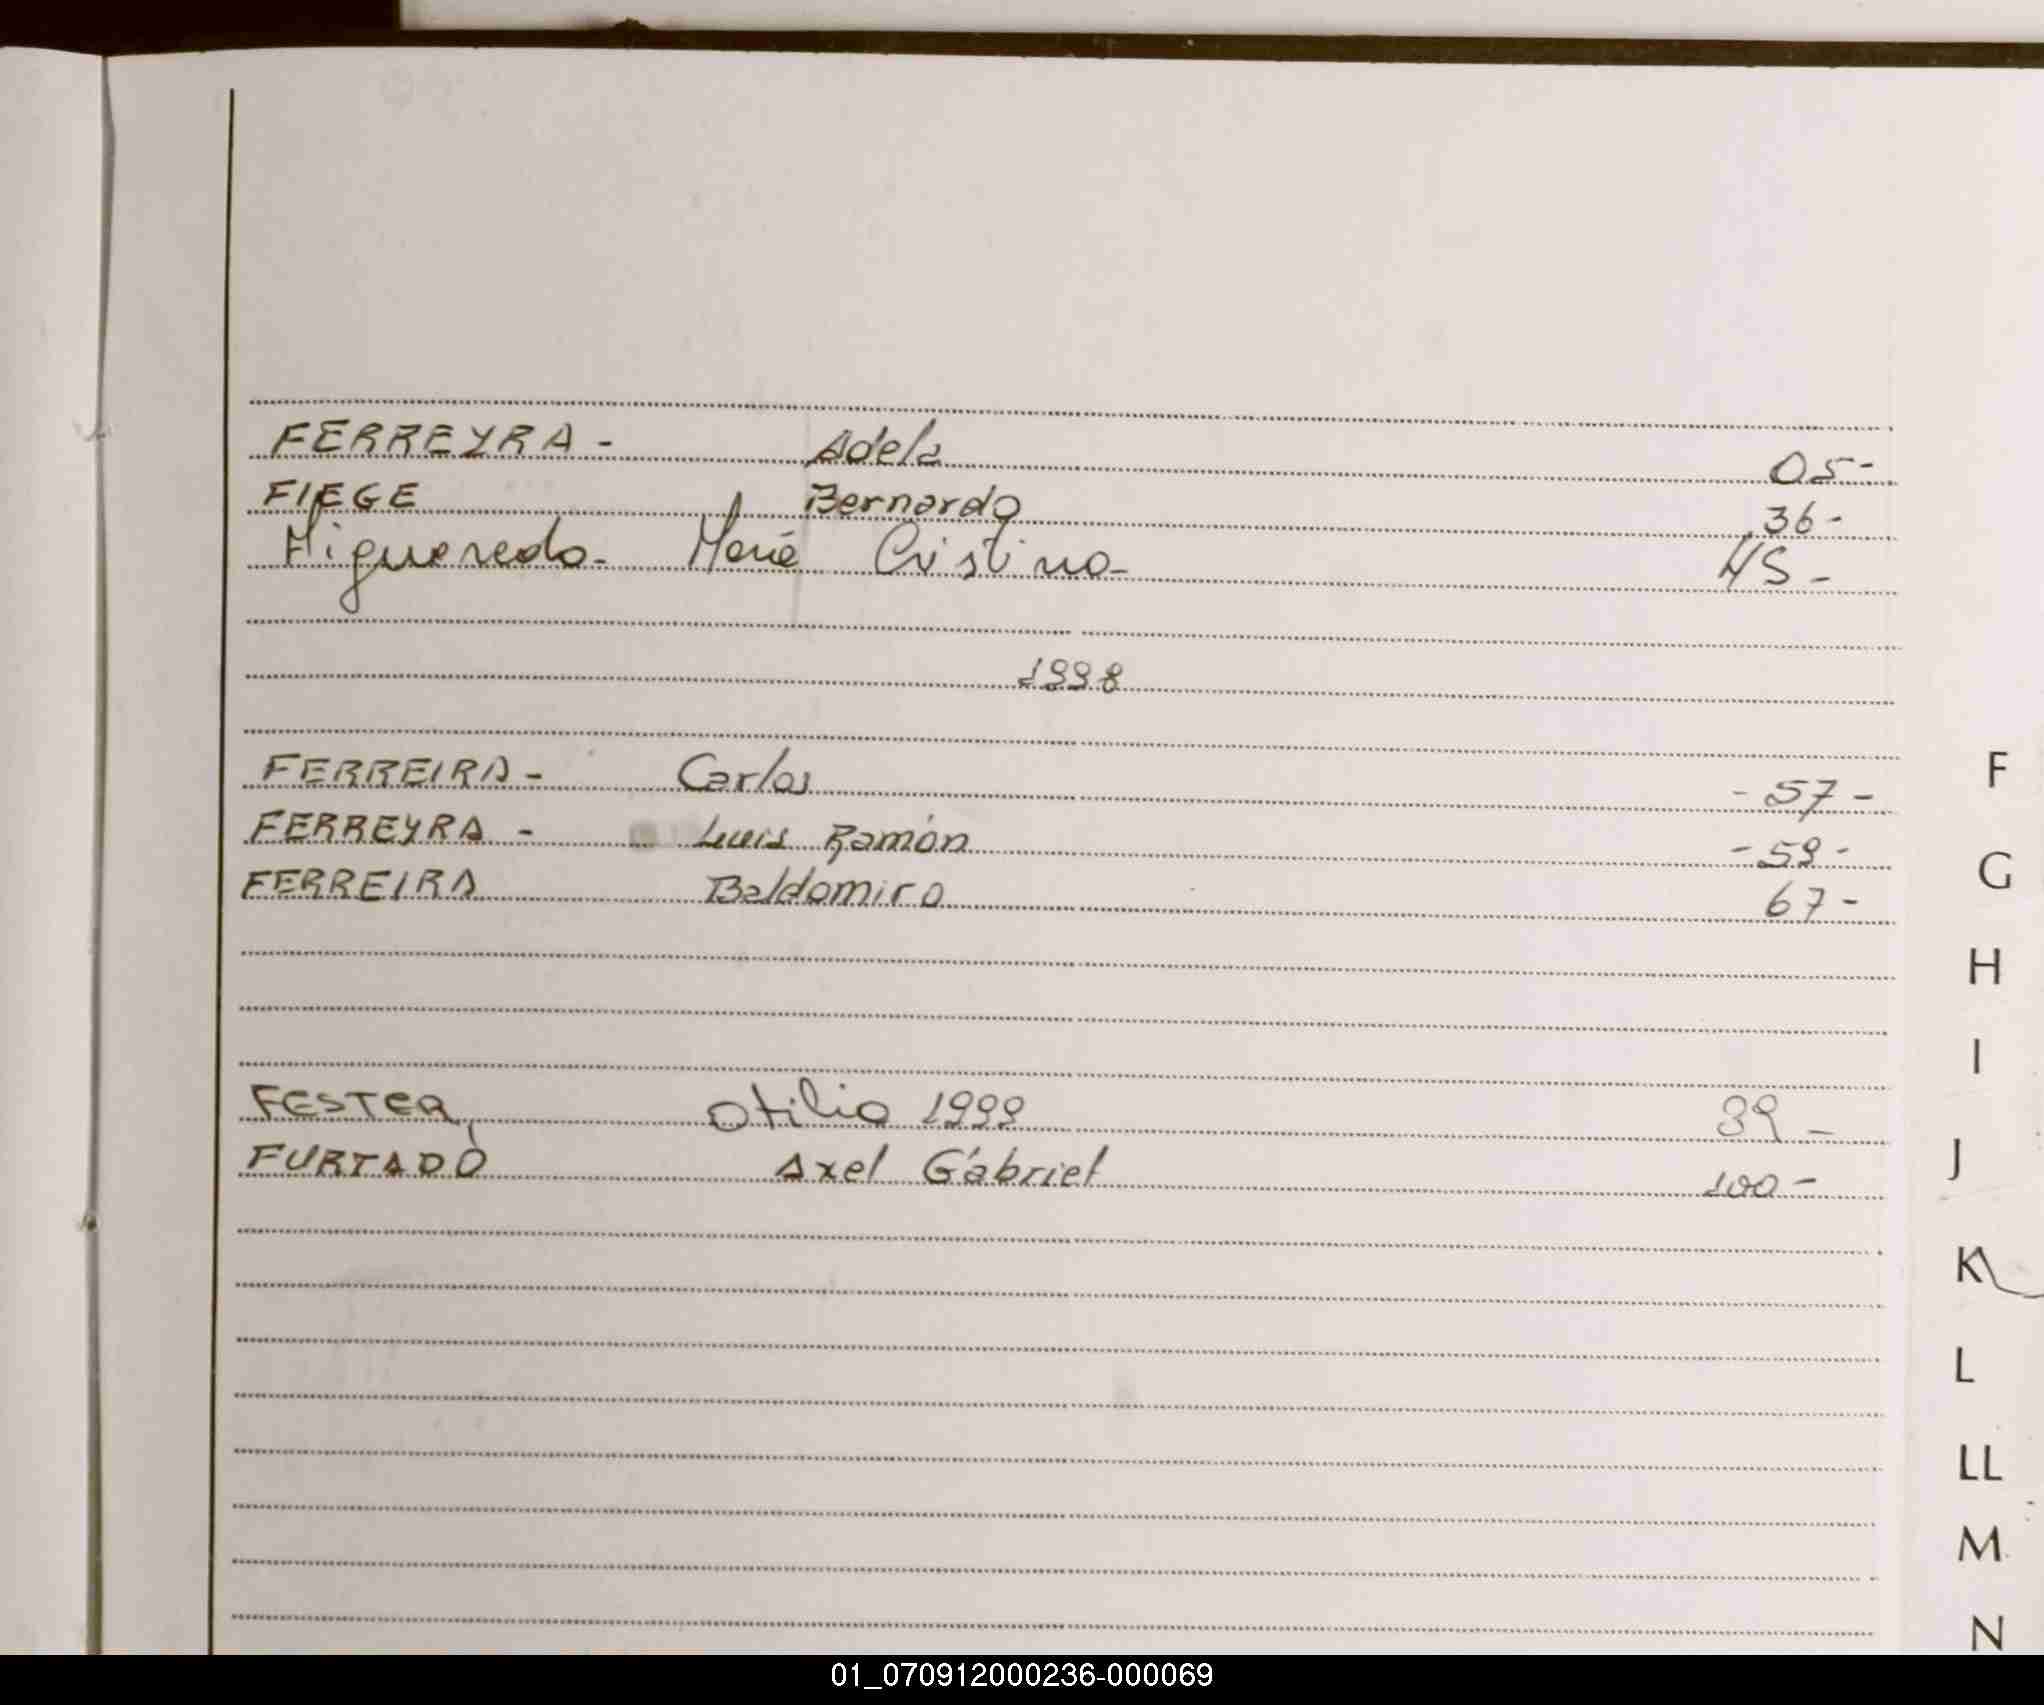 FERREYRA - Adela 05-
FIEGE Bernardo 36-
Figueredo- María Cristina- 45-
1998
FERREIRA- Carlos - 57 -
FERREYRA - Luis Ramón - 59 -
FERREIRA Baldomiro 67 -
FESTER Otilia 1999 39 -
FURTADO Axel Gabriel 100 -
F
G
H
I
J
K
L
LL
M
N
01_070912000236-000069